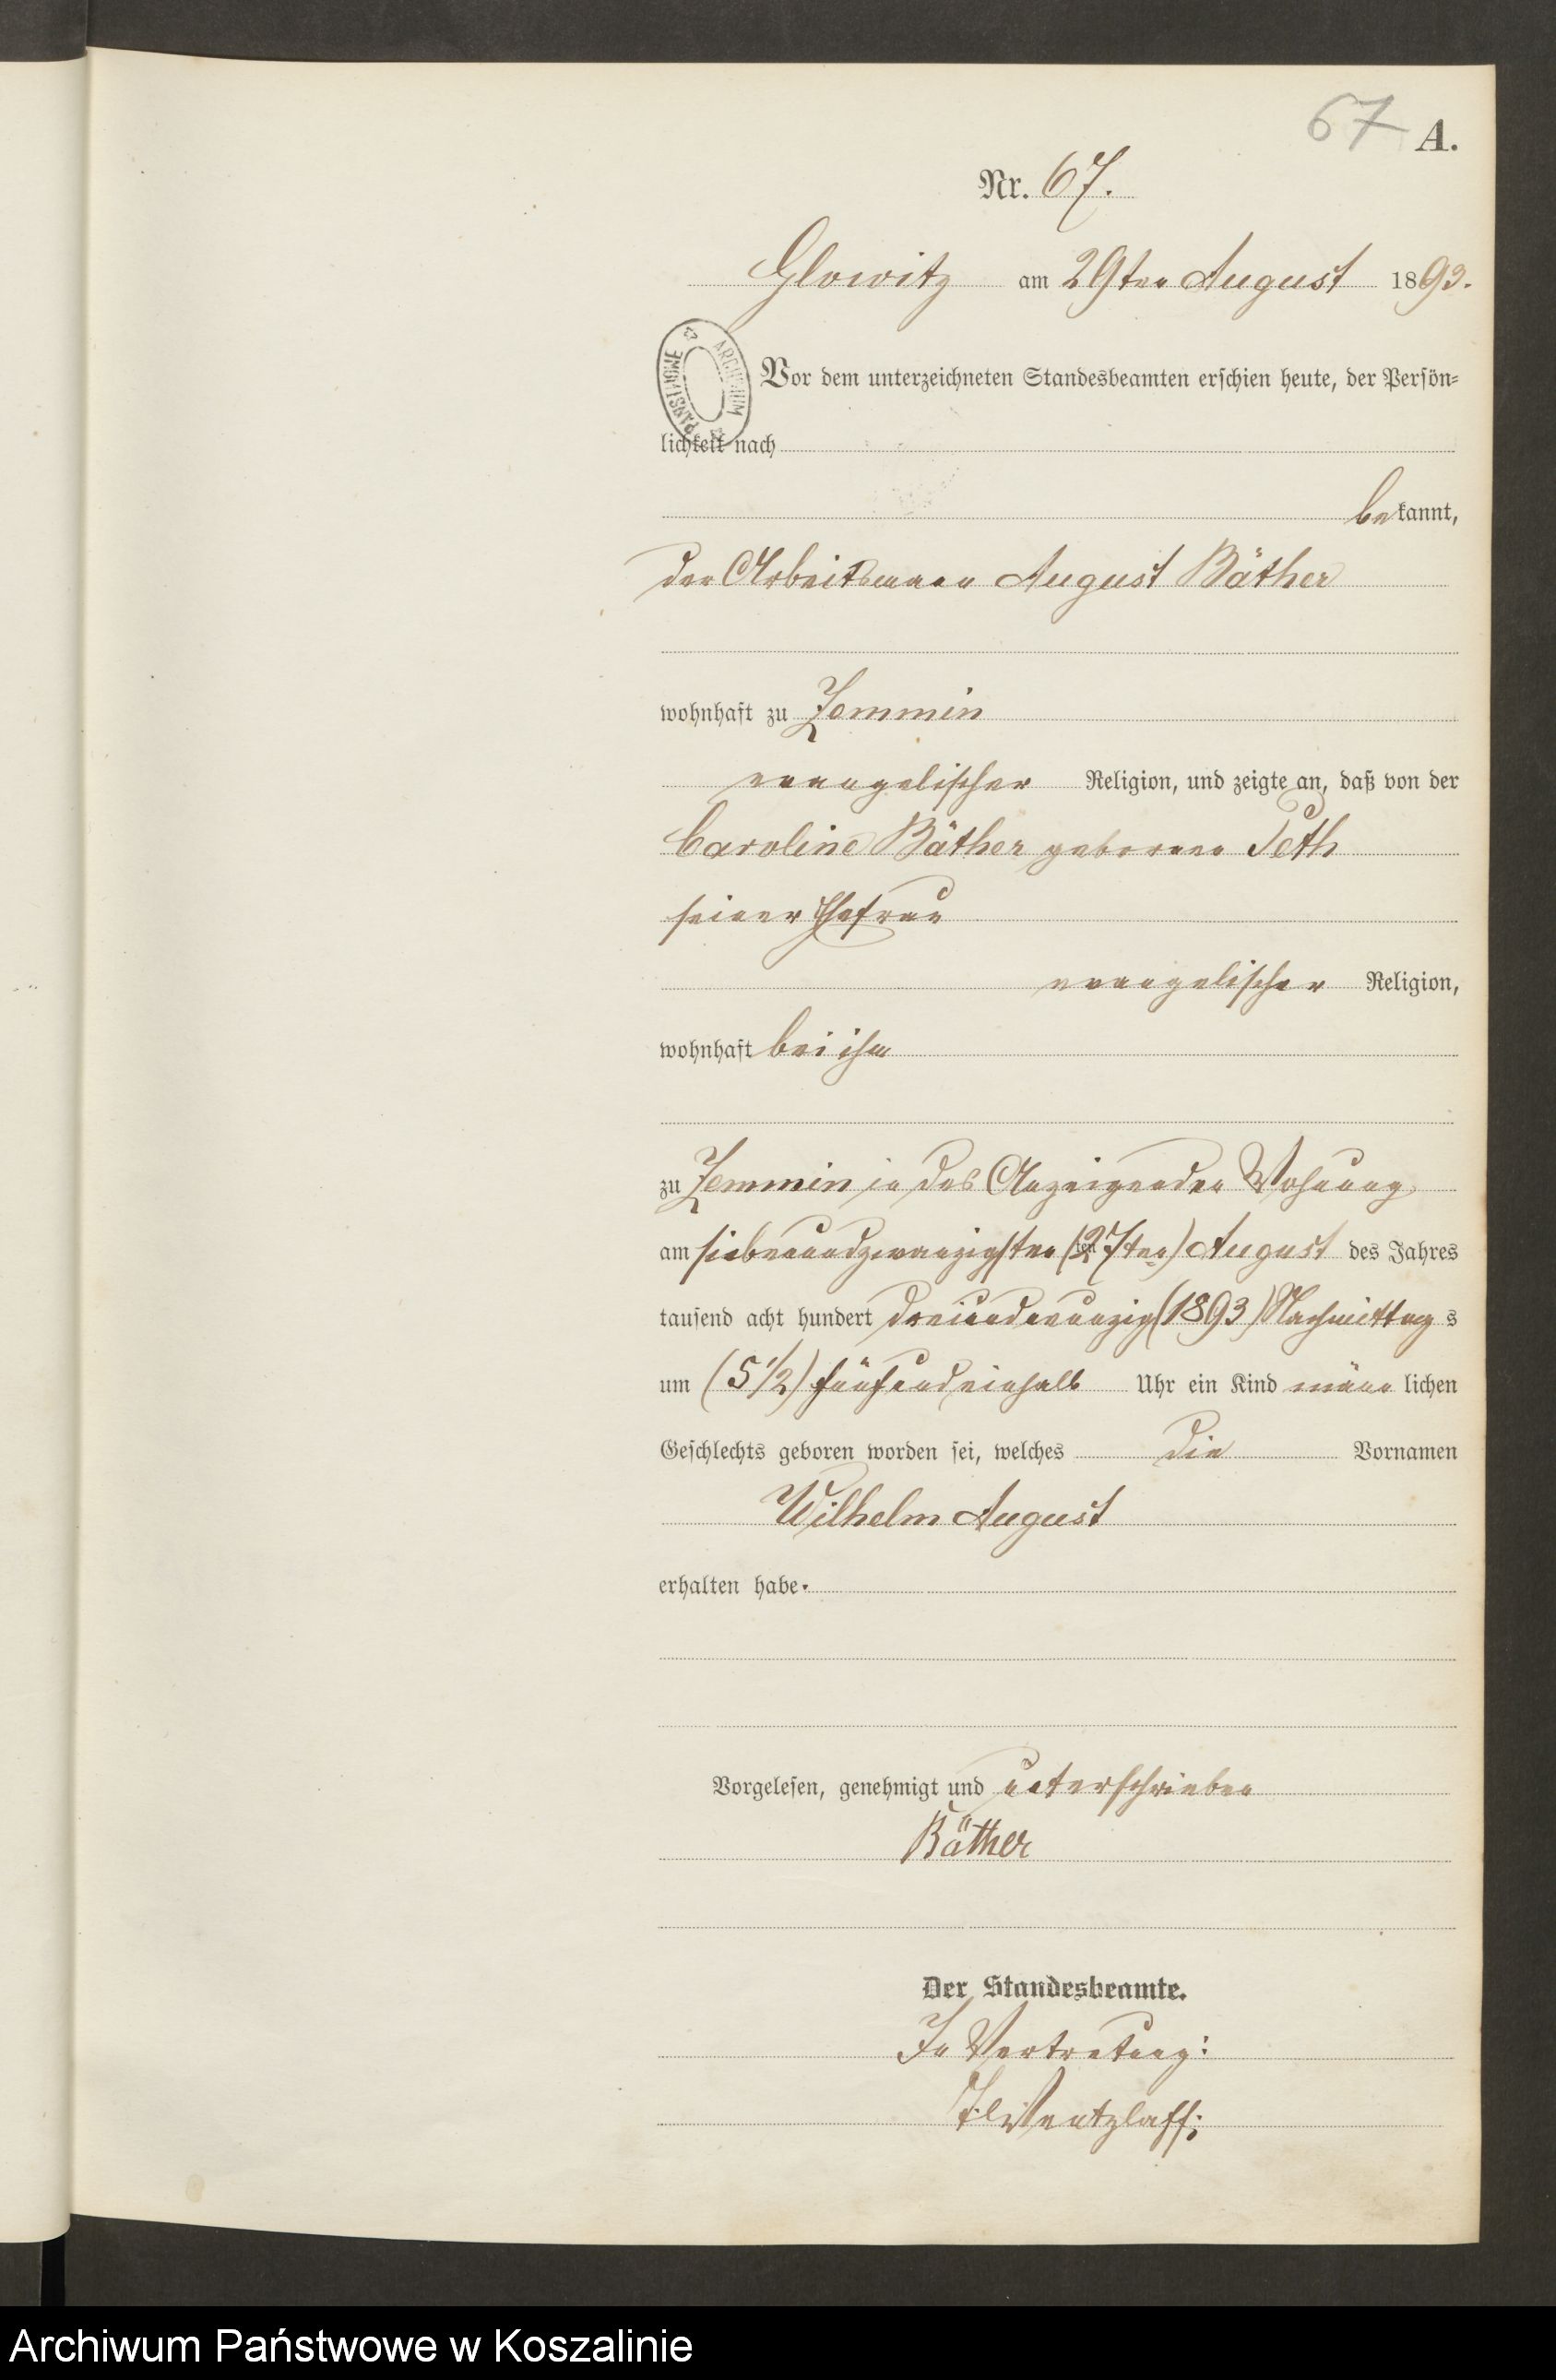 67 A.
Nr. 67.
Glowitz am 29ten August 1893.
ARCHIWUM PAŃSTWOWE
Vor dem unterzeichneten Standesbeamten erschien heute, der Persön=
lichkeit nach
bekannt,
der Arbeitsmann August Räther
wohnhaft zu Zemmin
evangelischer Religion, und zeigte an, daß von der
Caroline Räther geborene Peth
seiner Ehefrau
evangelischer Religion,
wohnhaft bei ihm
zu Zemmin in des Anzeigenden Wohnung
am siebenundzwanzigsten (27ten) August des Jahres
tausend acht hundert dreiundneunzig (1893) Nachmittags
um (5 1/2) fünfundeinhalb Uhr ein Kind männlichen
Geschlechts geboren worden sei, welches die Vornamen
Wilhelm August
erhalten habe.
Vorgelesen, genehmigt und unterschrieben
Räther
Der Standesbeamte.
In Vertretung:
Wentzlaff.
Archiwum Państwowe w Koszalinie